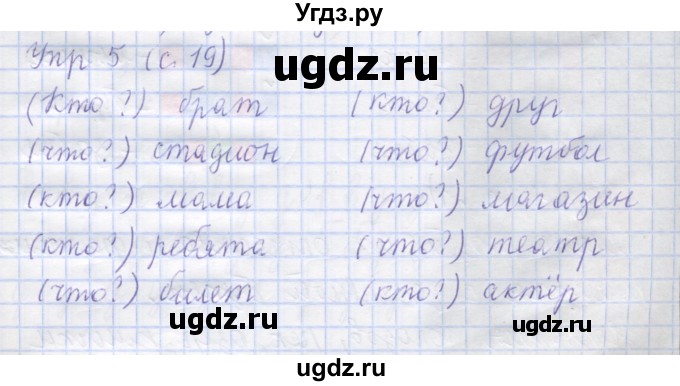 Угдз.ру
Упр 5 (с. 19)
ugdz.ru
(Кто?) брат (кто?) друг
(что?) стадион (что?) футбол
ugdz.ru
(кто?) мама (что?) магазин
(кто?) ребята (что?) театр
(что?) билет (кто?) актёр
ugdz.ru ugdz.ru
ugdz.ru